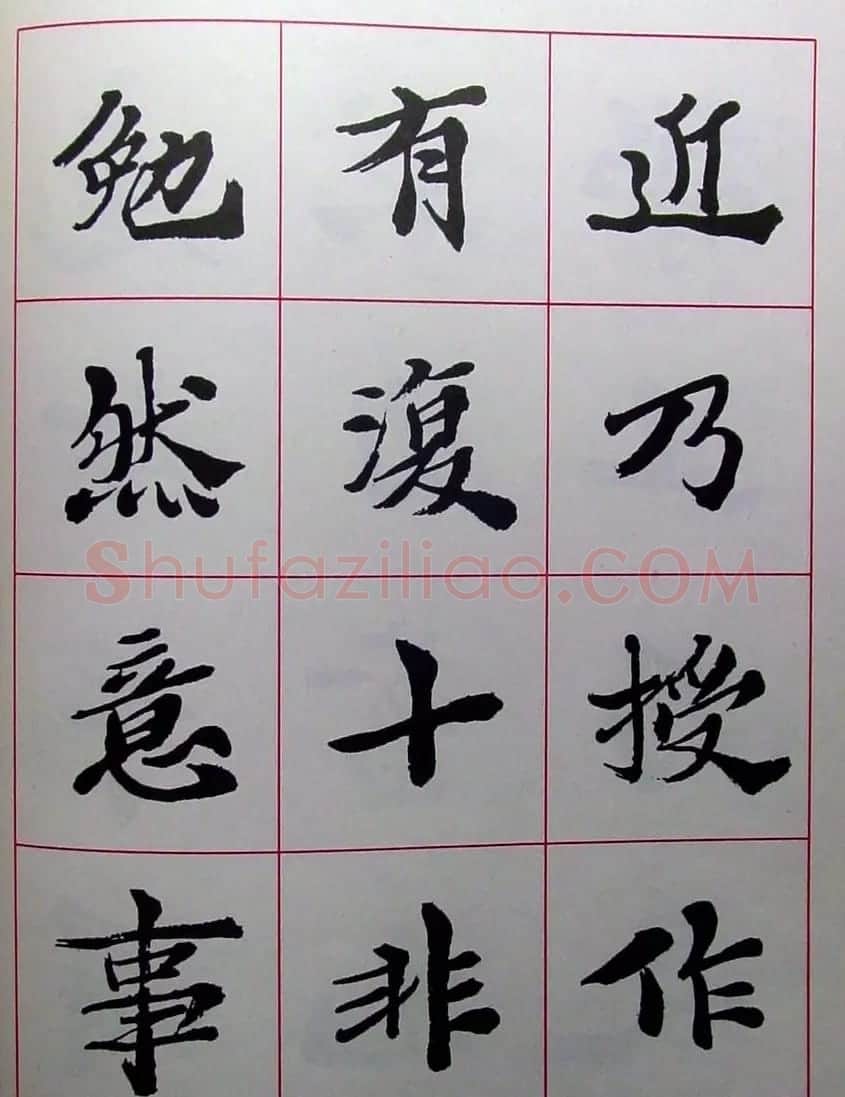 近乃授作
有復十非
勉然意事
Shufaziliao.COM